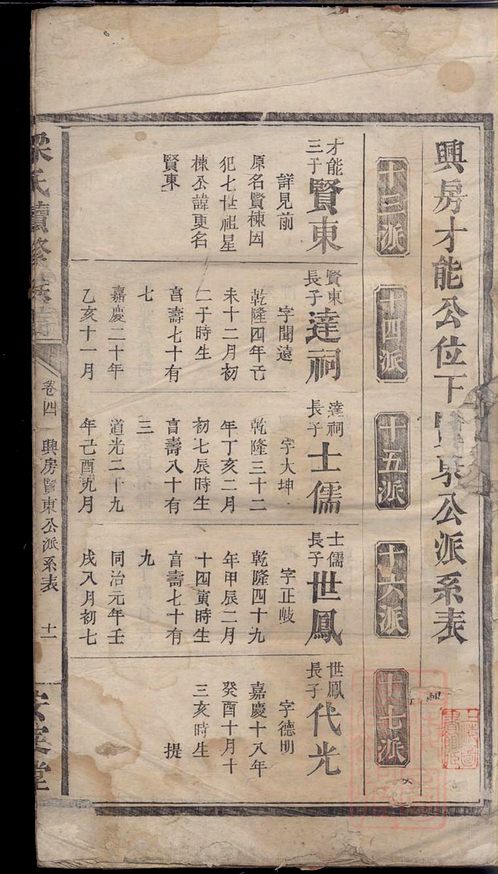 興房才能公位下賢東公派系表
十三派
十四派
十五派
十六派
十七派
才能
三子
賢東
詳見前
原名賢棟因
犯七世祖星
棟公諱更名
賢東
賢東
長子
達祠
字聞遠
乾隆四年己
未十二月初
二子時生
享壽七十有
七
嘉慶二十年
乙亥十一月
達祠
長子
士儒
字大坤
乾隆三十二
年丁亥二月
初七辰時生
享壽八十有
三
道光二十九
年己酉九月
士儒
長子
世鳳
字正岐
乾隆四十九
年甲辰二月
十四寅時生
享壽七十有
九
同治元年壬
戌八月初七
世鳳
長子
代光
字德明
嘉慶十八年
癸酉十月十
三亥時生
提
梁氏續修族譜
卷四
興房賢東公派系表
十一
安定堂